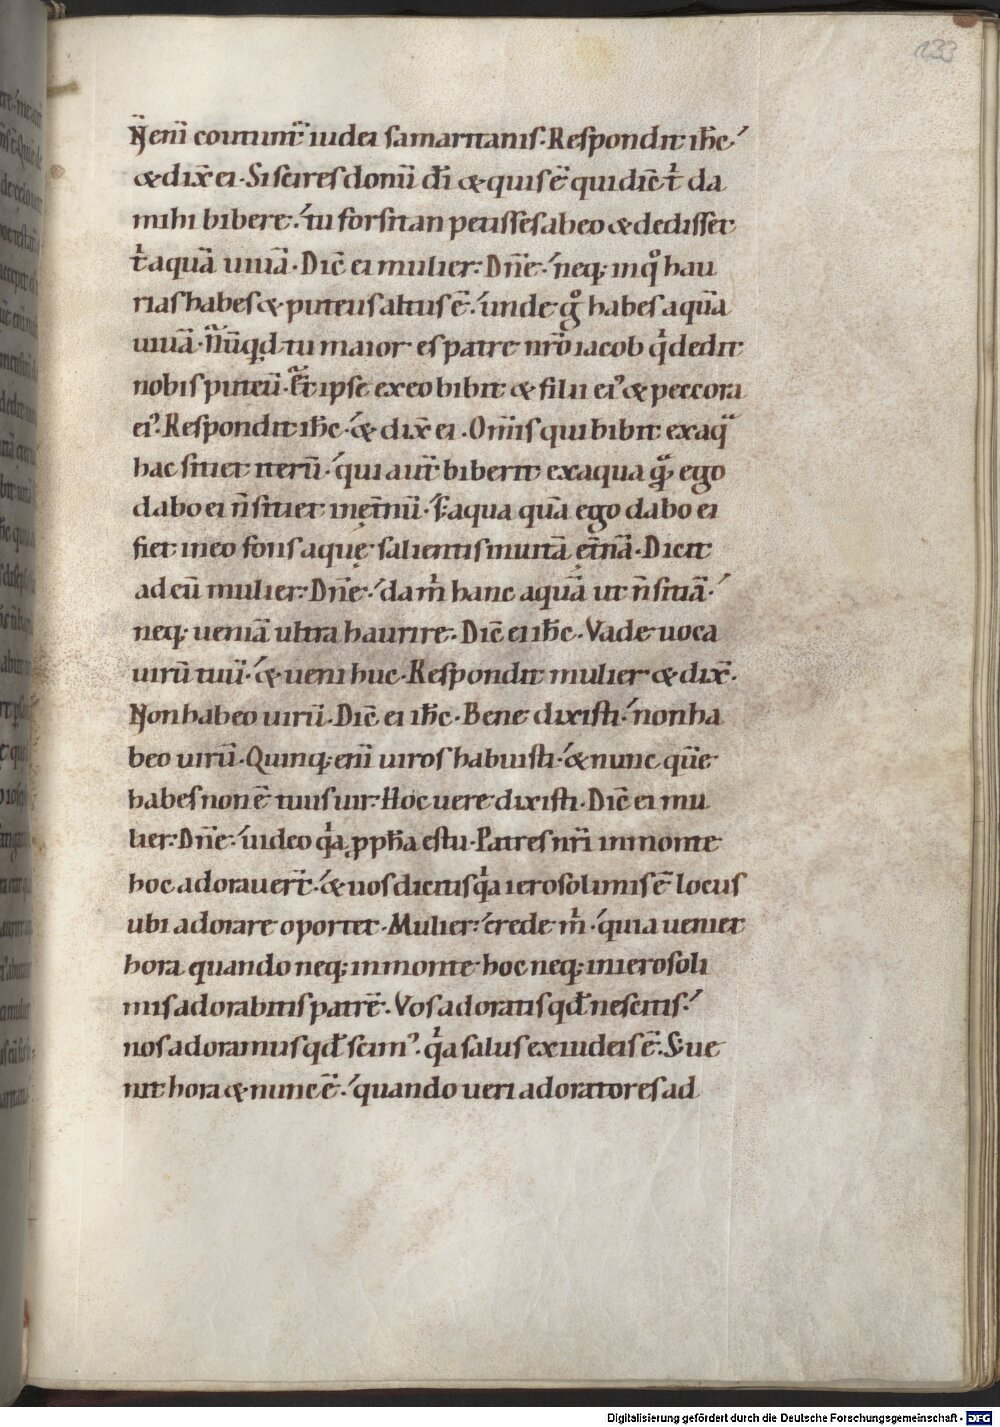 133
N̄ eni̅ coutunt̅ iudei samaritanis. Respondit ih̅c
& dix̅ ei. Si scires donu̅ d̅i & quis e̅ qui dic̅ t̛ da
mihi bibere. tu forsitan petisses ab eo & dedisset
t̛ aqua̅ uiua̅. Dic̅ ei mulier. Dn̅e. neq; in qͦ hau
rias habes & puteus altus e̅. unde gͦ habes aqua̅
uiua̅. Nu̅qd tu maior es patre nr̅o iacob qͥ dedit
nobis puteu̅. Et ipse ex eo bibit & filii ei᾿ & peccora
ei᾿. Respondit ih̅c. & dix̅ ei. Om̅is qui bibit ex aqᵃ
hac sitiet iteru̅. qui aut̅ biberit ex aqua qᵃ̅ ego
dabo ei n̅ sitiet in ęt̅nu̅. S; aqua qua̅ ego dabo ei
fiet in eo fons aquę salientis in uita̅ ęt̅na̅. Dicit
ad eu̅ mulier. Dn̅e. da mͥ hanc aqua̅ ut n̅ sitia̅.
neq; uenia̅ ultra haurire. Dic̅ ei ih̅c. Vade uoca
uiru̅ tuu̅. & ueni huc. Respondit mulier & dix̅.
Non habeo uiru̅. Dic̅ ei ih̅c. Bene dixisti. non ha
beo uiru̅. Quinq; eni̅ uiros habuisti. & nunc que̅
habes non e̅ tuus uir. Hoc uere dixisti. Dic̅ ei mu
lier. Dn̅e. uideo qͥa ꝓph̅a es tu. Patres nr̅i in monte
hoc adorauer̅t. & uos dicitis qͥa ierosolimis e̅ locus
ubi adorare oportet. Mulier. crede mͥ. quia ueniet
hora quando neq; in monte hoc neq; in ierosoli
mis adorabitis patre̅. Vos adoratis qd̅ nescitis.
nos adoramus qd̅ scim᾿. qͥa salus ex iudeis e̅. S; ue
nit hora & nunc e̅. quando ueri adoratores ad
Digitalisierung gefördert durch die Deutsche Forschungsgemeinschaft - DFG